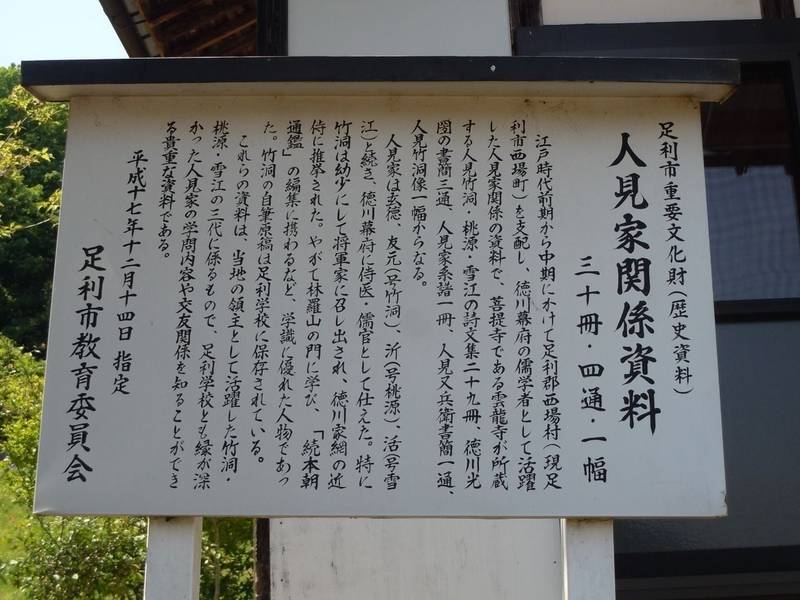 足利市重要文化財（歴史資料）
人見家関係資料
三十冊・四通・一幅
江戸時代前期から中期にかけて足利郡西場村（現足
利市西場町）を支配し、徳川幕府の儒学者として活躍
した人見家関係の資料で、菩提寺である雲龍寺が所蔵
する人見竹洞・桃源・雪江の詩文集二十九冊、徳川光
圀の書簡三通、人見家系譜一冊、人見又兵衛書簡一通、
人見竹洞像一幅からなる。
人見家は玄徳、友元（号竹洞）、沂（号桃源）、活（号雪
江）と続き、徳川幕府に侍医・儒官として仕えた。特に
竹洞は幼少にして将軍家に召し出され、徳川家綱の近
侍に推挙された。やがて林羅山の門に学び、「続本朝
通鑑」の編集に携わるなど、学識に優れた人物であっ
た。竹洞の自筆原稿は足利学校に保存されている。
これらの資料は、当地の領主として活躍した竹洞・
桃源・雪江の三代に係るもので、足利学校とも縁が深
かった人見家の学問内容や交友関係を知ることができ
る貴重な資料である。
平成十七年十二月十四日 指定
足利市教育委員会